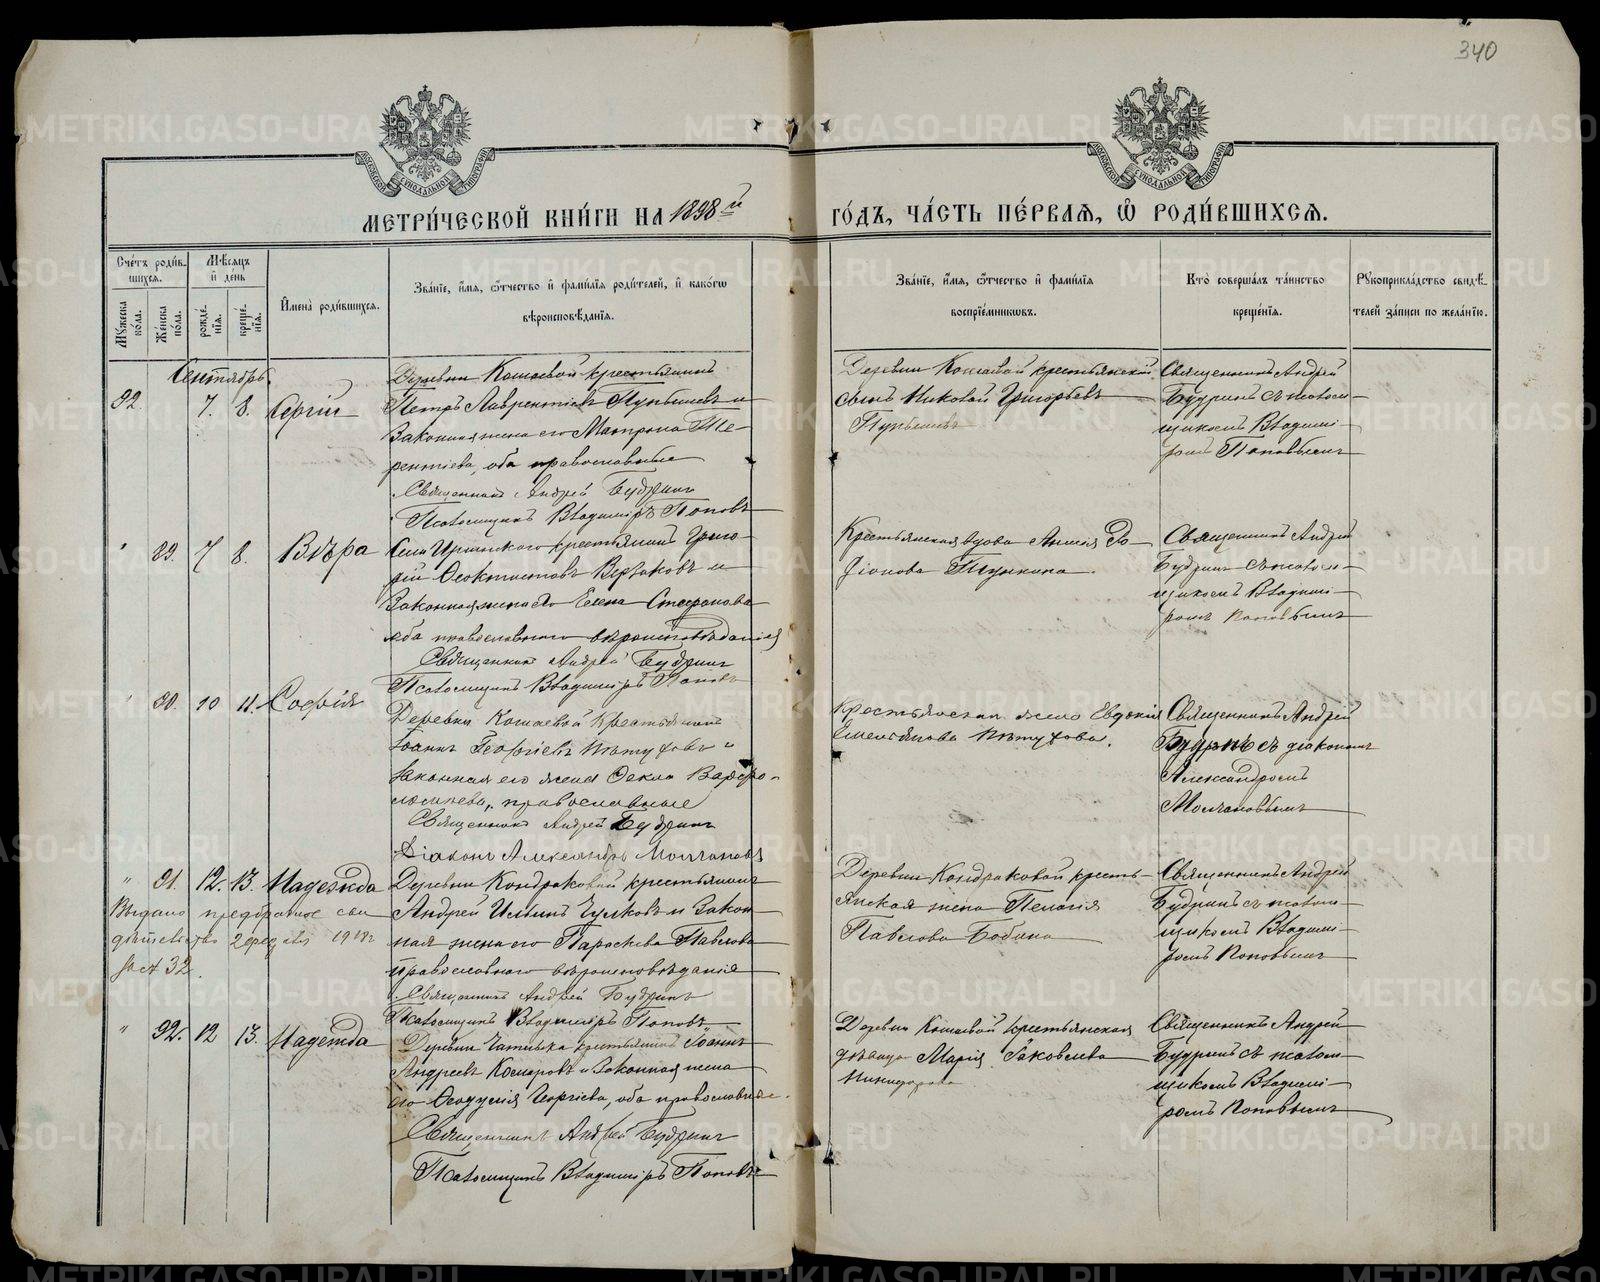 340
МЕТРИ́ЧЕСКОЙ КНИ́ГИ НА 1898 й ГО́ДЪ, ЧА́СТЬ ПЕ́РВАЯ, Ѿ РОДИ́ВШИХСЯ.
Сче́тъ роди́в-
шихся.
Мѣ́сяцъ
и҆ де́нь
Мꙋ́жеска
по́ла.
Же́нска
по́ла.
рожде́-
нїя.
креще́-
нїя.
И҆мена̀ роди́вшихся.
Зва́нїе, и҆́мя, ѻ҆́тчество и҆ фами́лїя роди́телей, и҆ како́гѡ
вѣроисповѣ́данїя.
Зва́нїе, и҆́мя, ѻ҆́тчество и҆ фами́лїя
воспрїе́мникѡвъ.
Кто̀ соверша́лъ та́инство
креще́нїя.
Рꙋкоприкла́дство свидѣ́-
телей за́писи по жела́нїю.
Сентябрь.
7. 8. Сергій
Деревни Кошаевой крестьянинъ
Петръ Лаврентіевъ и
Законная жена его Матрона Те-
рентіева, оба православные
Священникъ Андрей Будринъ
Псаломщикъ Владиміръ Поповъ
Деревни Кошаевой крестьянскій
сынъ Николай Григорьевъ
Священникъ Андрей
Будринъ съ псалом-
щикомъ Владимі-
ромъ Поповымъ
" 29. 7 8. Вѣра
Села крестьянинъ Григо-
рій Ѳеоктистовъ и
Законная жена его Елена Стефанова
оба православнаго вѣроисповѣданія
Священникъ Андрей Будринъ
Псаломщикъ Владиміръ Поповъ
Крестьянская вдова Ро-
діонова
Священникъ Андрей
Будринъ съ псалом-
щикомъ Владимі-
ромъ Поповымъ
" 30. 10 11. Софія
Деревни Кошаевой крестьянинъ
Іоаннъ Георгіевъ Пѣтуховъ и
законная его жена Ѳекла Варфоло-
меева, православные
Священникъ Андрей Будринъ
Діаконъ Александръ Молчановъ
Крестьянская жена Евдокія
Емельянова Пѣтухова.
Священникъ Андрей
Будринъ съ діакономъ
Александромъ
Молчановымъ
" 31. 12. 13. Надежда
Выдано предбрачное сви
дѣтельство 1918 г
за № 32.
Деревни Кондраковой крестьянинъ
Андрей Ильинъ Чулковъ и Закон-
ная жена его Параскева Павлова
православнаго вѣроисповѣданія
Священникъ Андрей Будринъ
Псаломщикъ Владиміръ Поповъ
Деревни Кондраковой кресть-
янская жена Пелагія
Павлова Бабина
Священникъ Андрей
Будринъ съ псалом-
щикомъ Владимі-
ромъ Поповымъ
" 32. 12 13. Надежда
Деревни крестьянинъ Іоаннъ
Андреевъ Комаровъ и Законная жена
его Георгіева, оба православные.
Священникъ Андрей Будринъ
Псаломщикъ Владиміръ Поповъ
Деревни Кошаевой крестьянская
дѣвица Марія Яковлева
Никифорова
Священникъ Андрей
Будринъ съ псалом-
щикомъ Владимі-
ромъ Поповымъ
METRIKI.GASO-URAL.RU